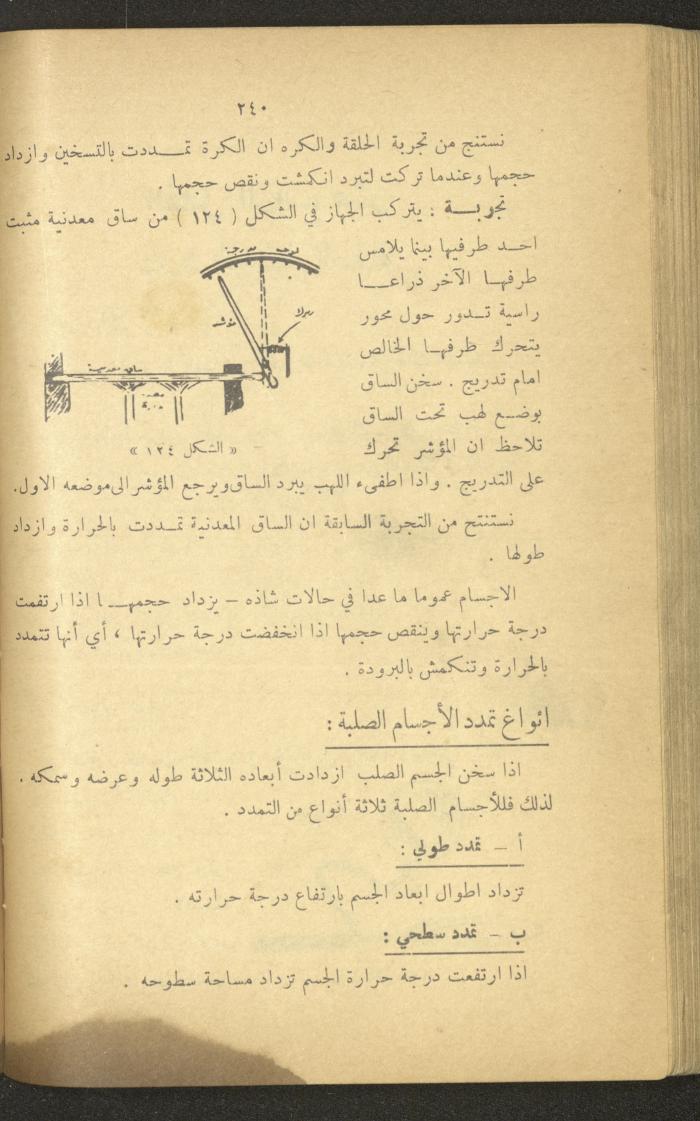 ٢٤٠
نستنج من تجربة الحلقة والكره ان الكرة تمـــددت بالتسخين وازداد
حجمها وعندما تركت لتبرد انكمشت ونقص حجمها .
تجربــة : يتركب الجهاز في الشكل ( ١٢٤ ) من ساق معدنية مثبت
احــد طرفيها بينما يلامس
طرفهــا الآخر ذراعـــا
راسية تــدور حول محور
يتحرك طرفهــا الخالص
امام تدريج . سخن الساق
بوضــع لهب تحت الساق
تلاحظ ان المؤشر تحرك
لوحة مدرجة
مؤشر
ساق معدنية
« الشكل ١٢٤ »
على التدريج . واذا اطفىء اللهب يبرد الساق ويرجع المؤشر الى موضعه الاول.
نستنتج من التجربة السابقة ان الساق المعدنية تمــددت بالحرارة وازداد
طولها .
الاجسام عموما ما عدا في حالات شاذه – يزداد حجمهـــا اذا ارتفعت
درجة حرارتها وينقص حجمها اذا انخفضت درجة حرارتها ، أي أنها تتمدد
بالحرارة وتنكمش بالبرودة .
انواغ تمدد الأجسام الصلبة :
اذا سخن الجسم الصلب ازدادت أبعاده الثلاثة طوله وعرضه وسمكه .
لذلك فللأجسام الصلبة ثلاثة أنواع من التمدد .
أ – تمدد طولي :
تزداد اطوال ابعاد الجسم بارتفاع درجة حرارته .
ب – تمدد سطحي :
اذا ارتفعت درجة حرارة الجسم تزداد مساحة سطوحه .